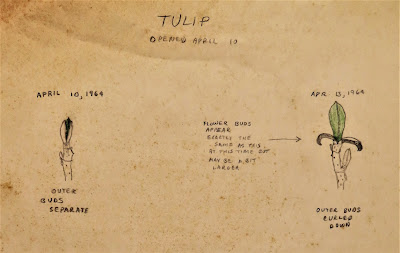 TULIP
OPENED APRIL 10
APRIL 10, 1964
APR 13, 1964
FLOWER BUDS
APPEAR
EXACTLY THE
SAME AS THIS
AT THIS TIME BUT
MAY BE A BIT
LARGER
OUTER
BUDS
SEPARATE
OUTER BUDS
CURLED
DOWN